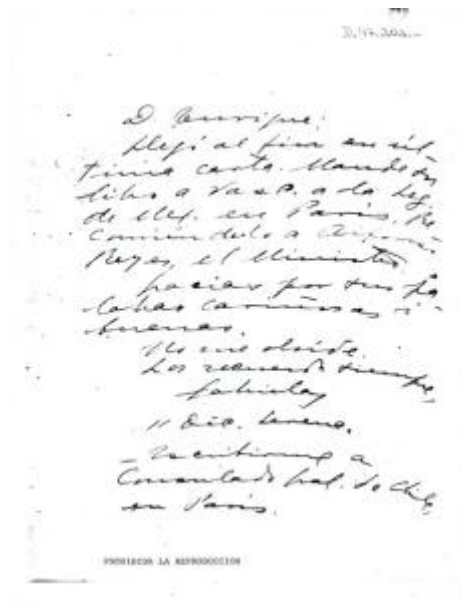 D. Enrique:
Llegó al fin su úl-
tima carta. Mande su
libro a Vasc. a la Leg.
de Méj. en París. Re
comiéndelo a Alfonso
Reyes, el Ministro
Gracias por sus pa
labras cariñosas i
buenas.
No me olvide.
Los recuerda siempre,
Gabriela
11 Dic.
– Escríbame a
Consulado Gral. de Chile,
en París.
PROHIBIDA LA REPRODUCCION